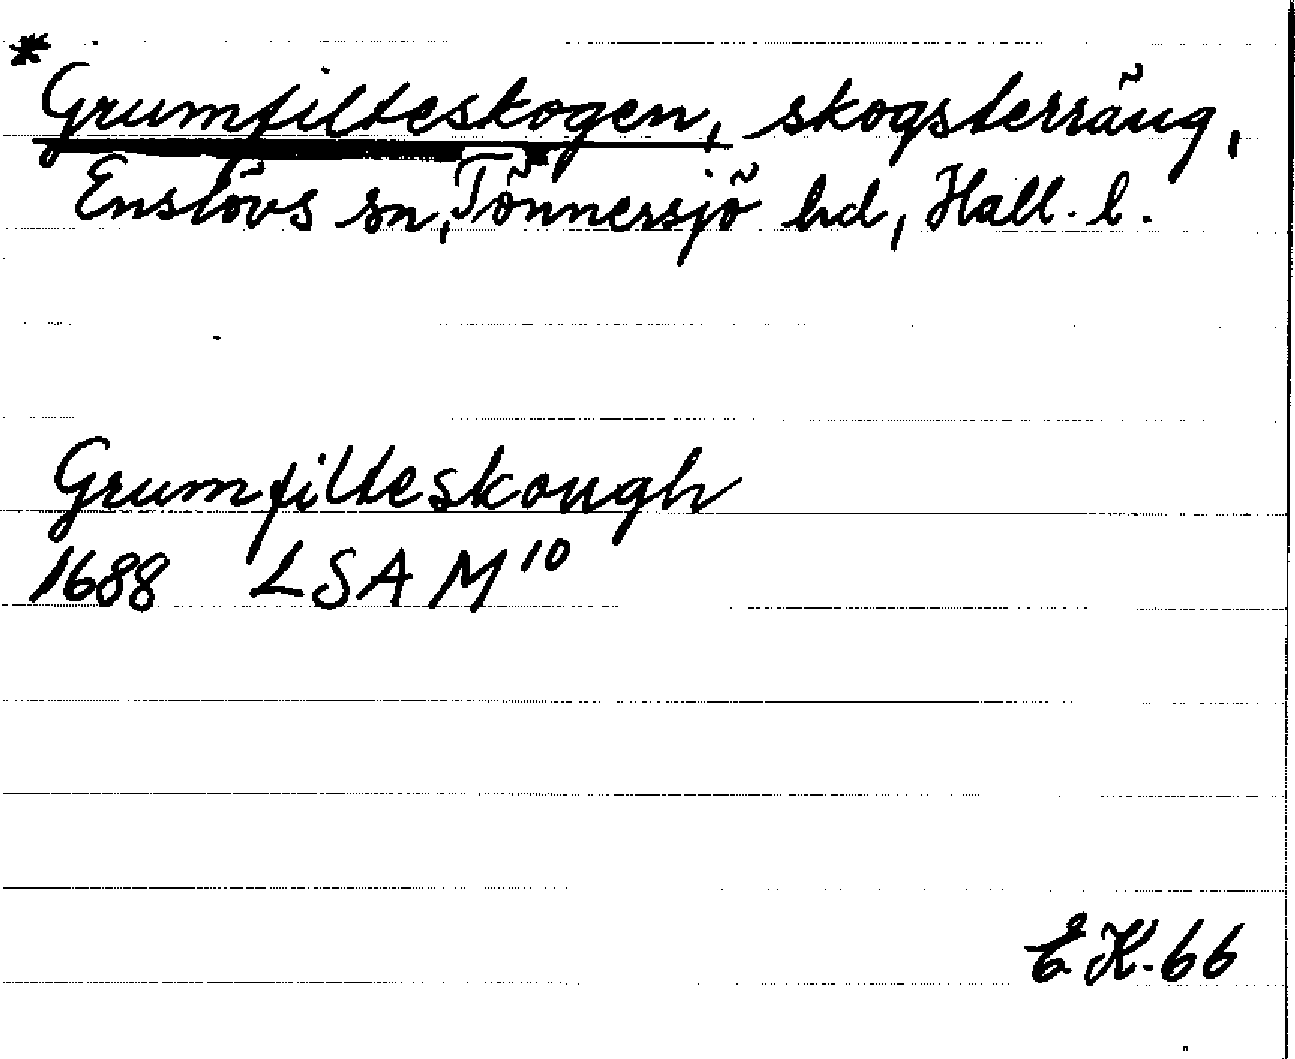 *
Grumfilteskogen, skogsterräng,
Enslövs sn, Tönnersjö hd, Hall. l.
Grumfilteskough
1688 LSA M¹⁰
E.K.66